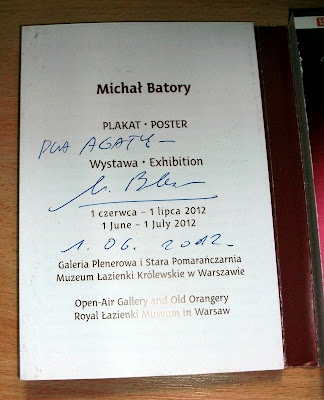 Michał Batory
PLAKAT · POSTER
DLA AGATY –
Wystawa · Exhibition
1 czerwca – 1 lipca 2012
1 June – 1 July 2012
1. 06. 2012
Galeria Plenerowa i Stara Pomarańczarnia
Muzeum Łazienki Królewskie w Warszawie
Open-Air Gallery and Old Orangery
Royal Łazienki Museum in Warsaw